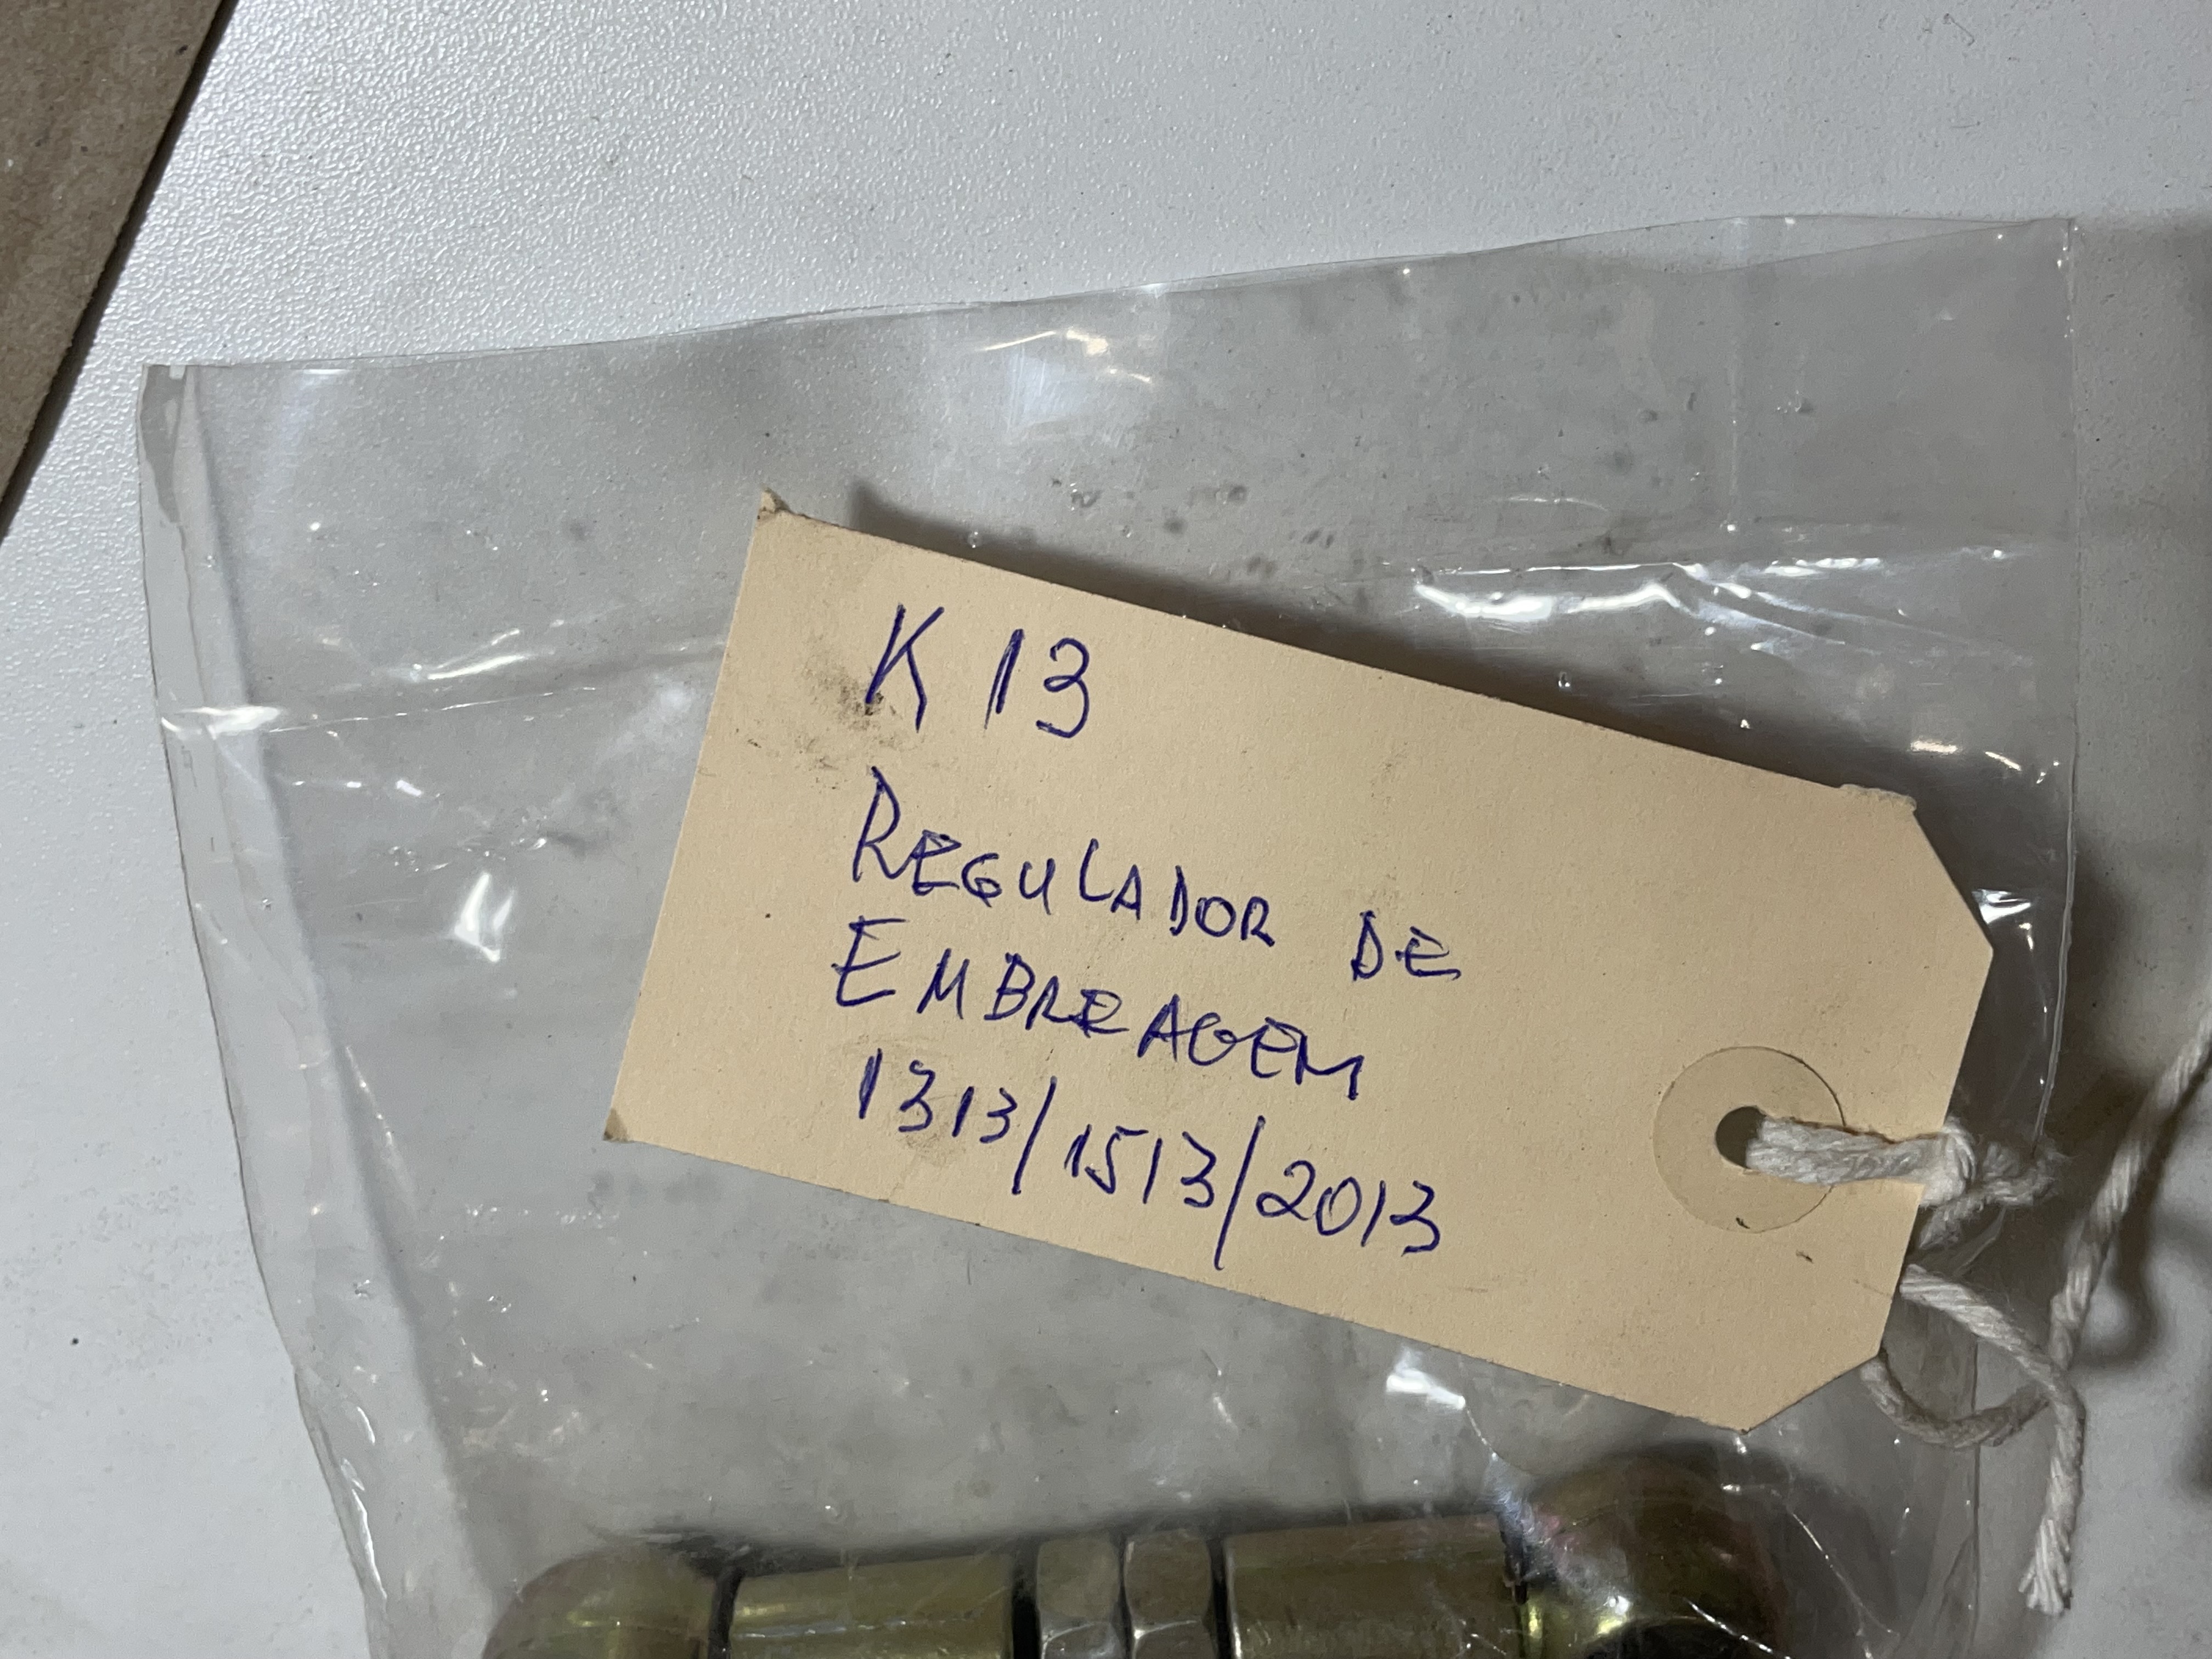 K 13
REGULADOR DE
EMBREAGEM
1313/1513/2013